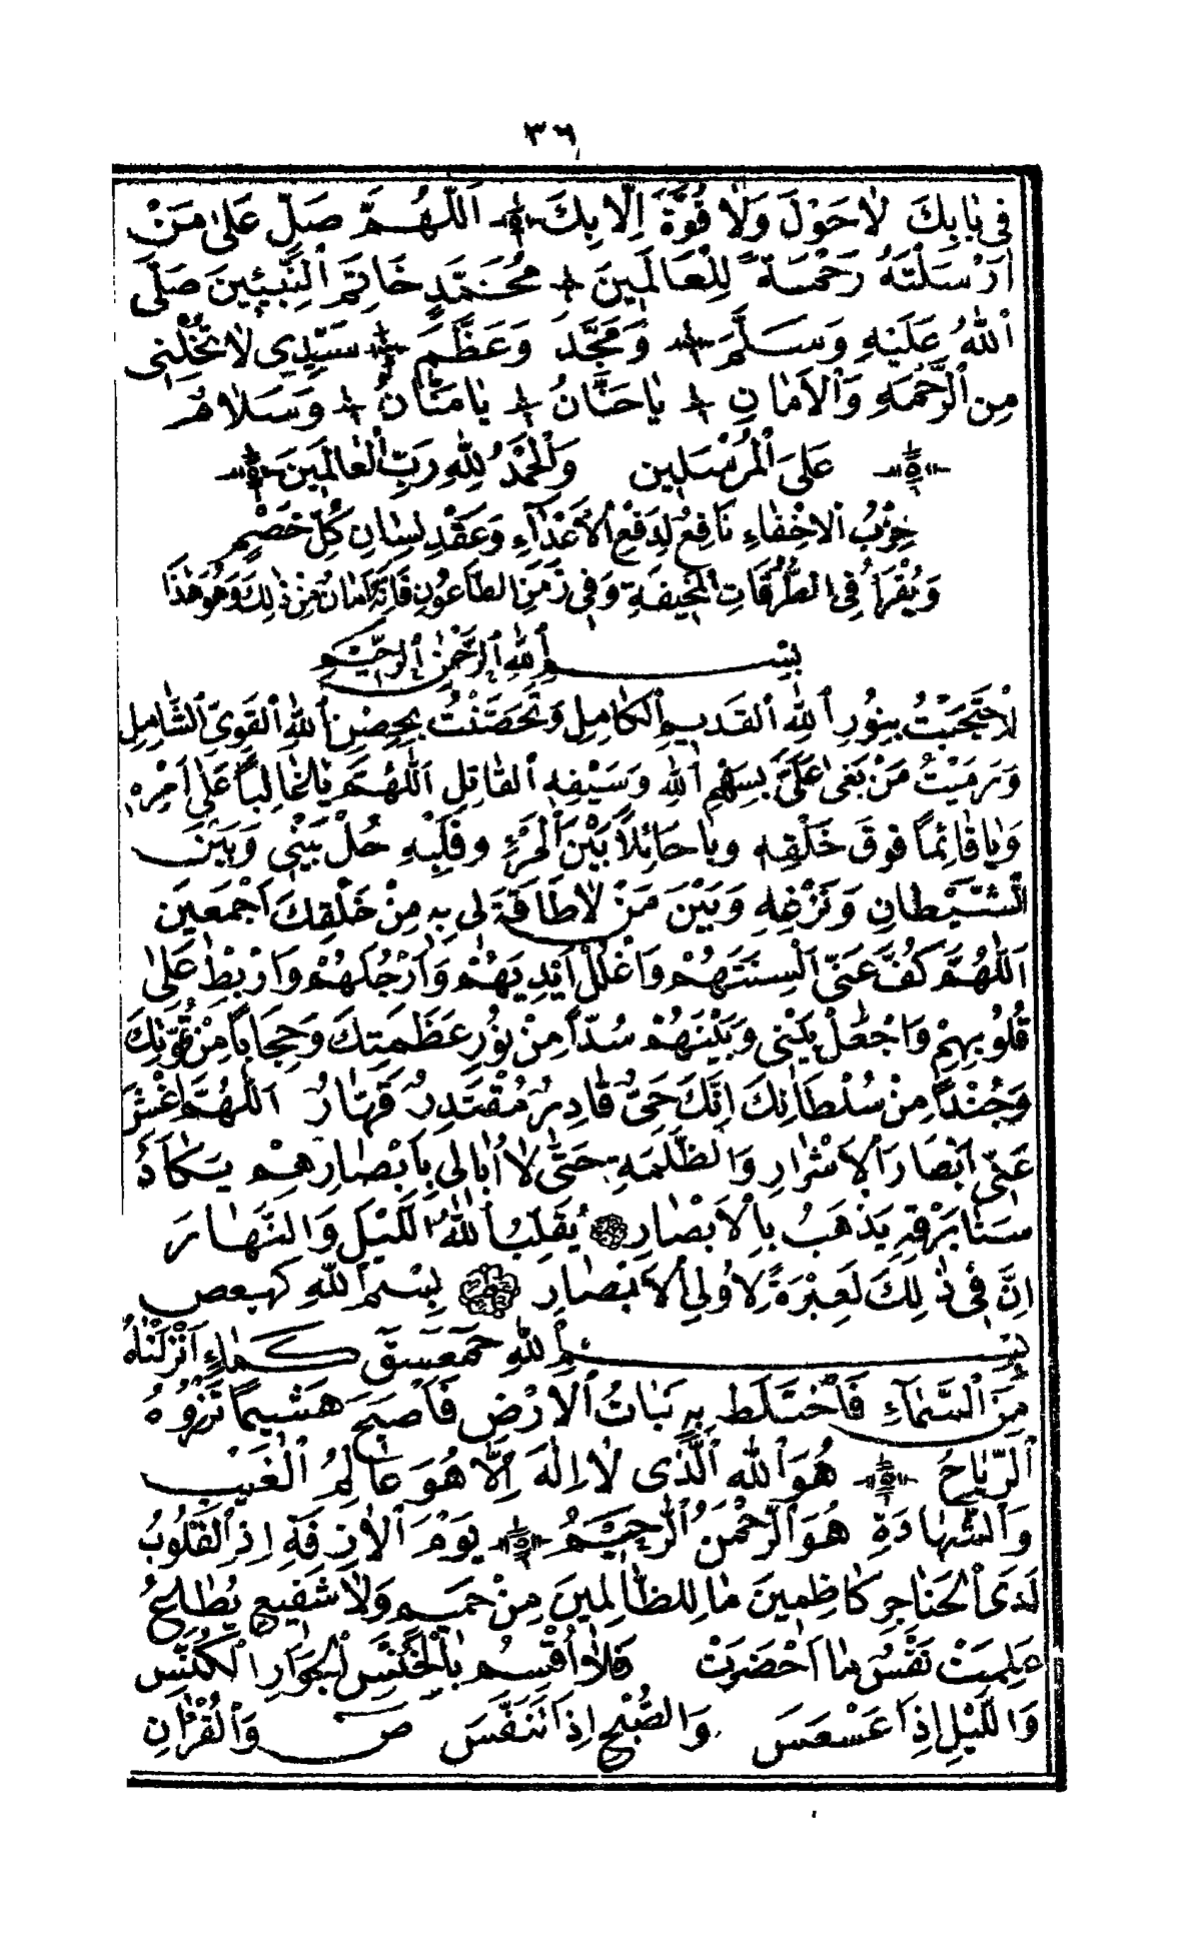 ٣٦
فِى بَابِكَ لَا حَوْلَ وَلَا قُوَّةَ اِلَّا بِكَ اَللّٰهُمَّ صَلِّ عَلٰى مَنْ
اَرْسَلْتَهُ رَحْمَةً لِلْعَالَمِينَ مُحَمَّدٍ خَاتَمِ النَّبِيِّينَ صَلَّى
اللهُ عَلَيْهِ وَسَلَّمَ وَمَجَّدَ وَعَظَّمَ سَيِّدِي لَا تُخْلِنِى
مِنَ الرَّحْمَةِ وَالْاَمَانِ يَا حَنَّانُ يَا مَنَّانُ وَسَلَامٌ
عَلَى الْمُرْسَلِين وَالْحَمْدُ لِلّٰهِ رَبِّ الْعَالَمِينَ
حِزْبُ الاخْفَاءِ نَافِعٌ لِدَفْعِ الْأَعْدَآءِ وَعَقْدِ لِسَانِ كُلِّ خَصْمٍ
وَيُقْرَأُ فِى الطُّرُقَاتِ الْمُخِيفَةِ وَفِى زَمَنِ الطَّاعُونِ فَاِنَّهُ اَمَانٌ مِنْ ذٰلِكَ وَهُوَ هٰذَا
بِسْمِ اللهِ الرَّحْمٰنِ الرَّحِيمِ
اِحْتَجَبْتُ بِنُورِ اللهِ الْقَدِيمِ الْكَامِلِ وَتَحَصَّنْتُ بِحِصْنِ اللهِ الْقَوِيِّ الشَّامِلِ
وَرَمَيْتُ مَنْ بَغٰى عَلَىَّ بِسَهْمِ اللهِ وَسَيْفِهِ الْقَاتِلِ اَللّٰهُمَّ يَا غَالِبًا عَلٰى اَمْرِهِ
وَيَا قَائِمًا فَوْقَ خَلْقِهِ وَيَا حَائِلًا بَيْنَ الْمَرْءِ وَقَلْبِهِ حُلْ بَيْنِى وَبَيْنَ
الشَّيْطَانِ وَنَزْغِهِ وَبَيْنَ مَنْ لَا طَاقَةَ لِى بِهِ مِنْ خَلْقِكَ اَجْمَعِينَ
اَللّٰهُمَّ كُفَّ عَنِّى اَلْسِنَتَهُمْ وَاغْلُلْ اَيْدِيَهُمْ وَاَرْجُلَهُمْ وَارْبِطْ عَلٰى
قُلُوبِهِمْ وَاجْعَلْ بَيْنِى وَبَيْنَهُمْ سُدًّا مِنْ نُورِ عَظَمَتِكَ وَحِجَابًا مِنْ قُوَّتِكَ
وَجُنْدًا مِنْ سُلْطَانِكَ اِنَّكَ حَىٌّ قَادِرٌ مُقْتَدِرٌ قَهَّارٌ اَللّٰهُمَّ اغْشَ
عَنِّى اَبْصَارَ الْاَشْرَارِ وَالظَّلَمَةِ حَتّٰى لَا اُبَالِى بِاَبْصَارِهِمْ يَكَادُ
سَنَا بَرْقِهِ يَذْهَبُ بِالْاَبْصَارِ يُقَلِّبُ اللهُ اللَّيْلَ وَالنَّهَارَ
اِنَّ فِى ذٰلِكَ لَعِبْرَةً لِاُولِى الْاَبْصَارِ بِسْمِ اللهِ كهيعص
بِسْمِ اللهِ حٰمٓعٓسٓقٓ كَمَاءٍ اَنْزَلْنَاهُ
مِنَ السَّمَآءِ فَاخْتَلَطَ بِهِ نَبَاتُ الْاَرْضِ فَاَصْبَحَ هَشِيمًا تَذْرُوهُ
الرِّيَاحُ هُوَ اللهُ الَّذِى لَا اِلٰهَ اِلَّا هُوَ عَالِمُ الْغَيْبِ
وَالشَّهَادَةِ هُوَ الرَّحْمٰنُ الرَّحِيمُ يَوْمَ الْاٰزِفَةِ اِذِ الْقُلُوبُ
لَدَى الْحَنَاجِرِ كَاظِمِينَ مَا لِلظَّالِمِينَ مِنْ حَمِيمٍ وَلَا شَفِيعٍ يُطَاعُ
عَلِمَتْ نَفْسٌ مَا اَحْضَرَتْ فَلَا اُقْسِمُ بِالْخُنَّسِ الْجَوَارِ الْكُنَّسِ
وَاللَّيْلِ اِذَا عَسْعَسَ وَالصُّبْحِ اِذَا تَنَفَّسَ صٓ وَالْقُرْاٰنِ